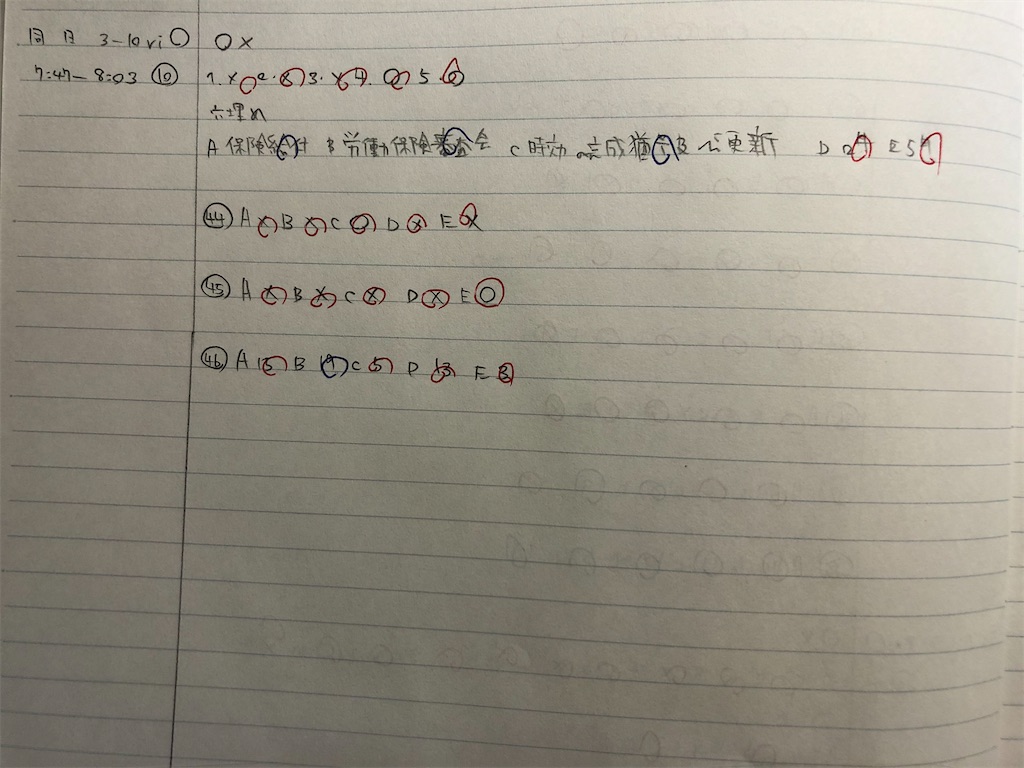 同日 3-10 vi ○ ○×
7:47-8:03 ⑩ 1. × 2. × 3. × 4. ○ 5. ○
穴埋め
A 保険給付 B 労働保険審査会 C 時効の完成猶予及び更新 D 2年 E 5年
㊹ A × B × C ○ D × E ×
㊺ A × B × C × D × E ○
㊻ A 15 B 19 C 5 D 13 E 3